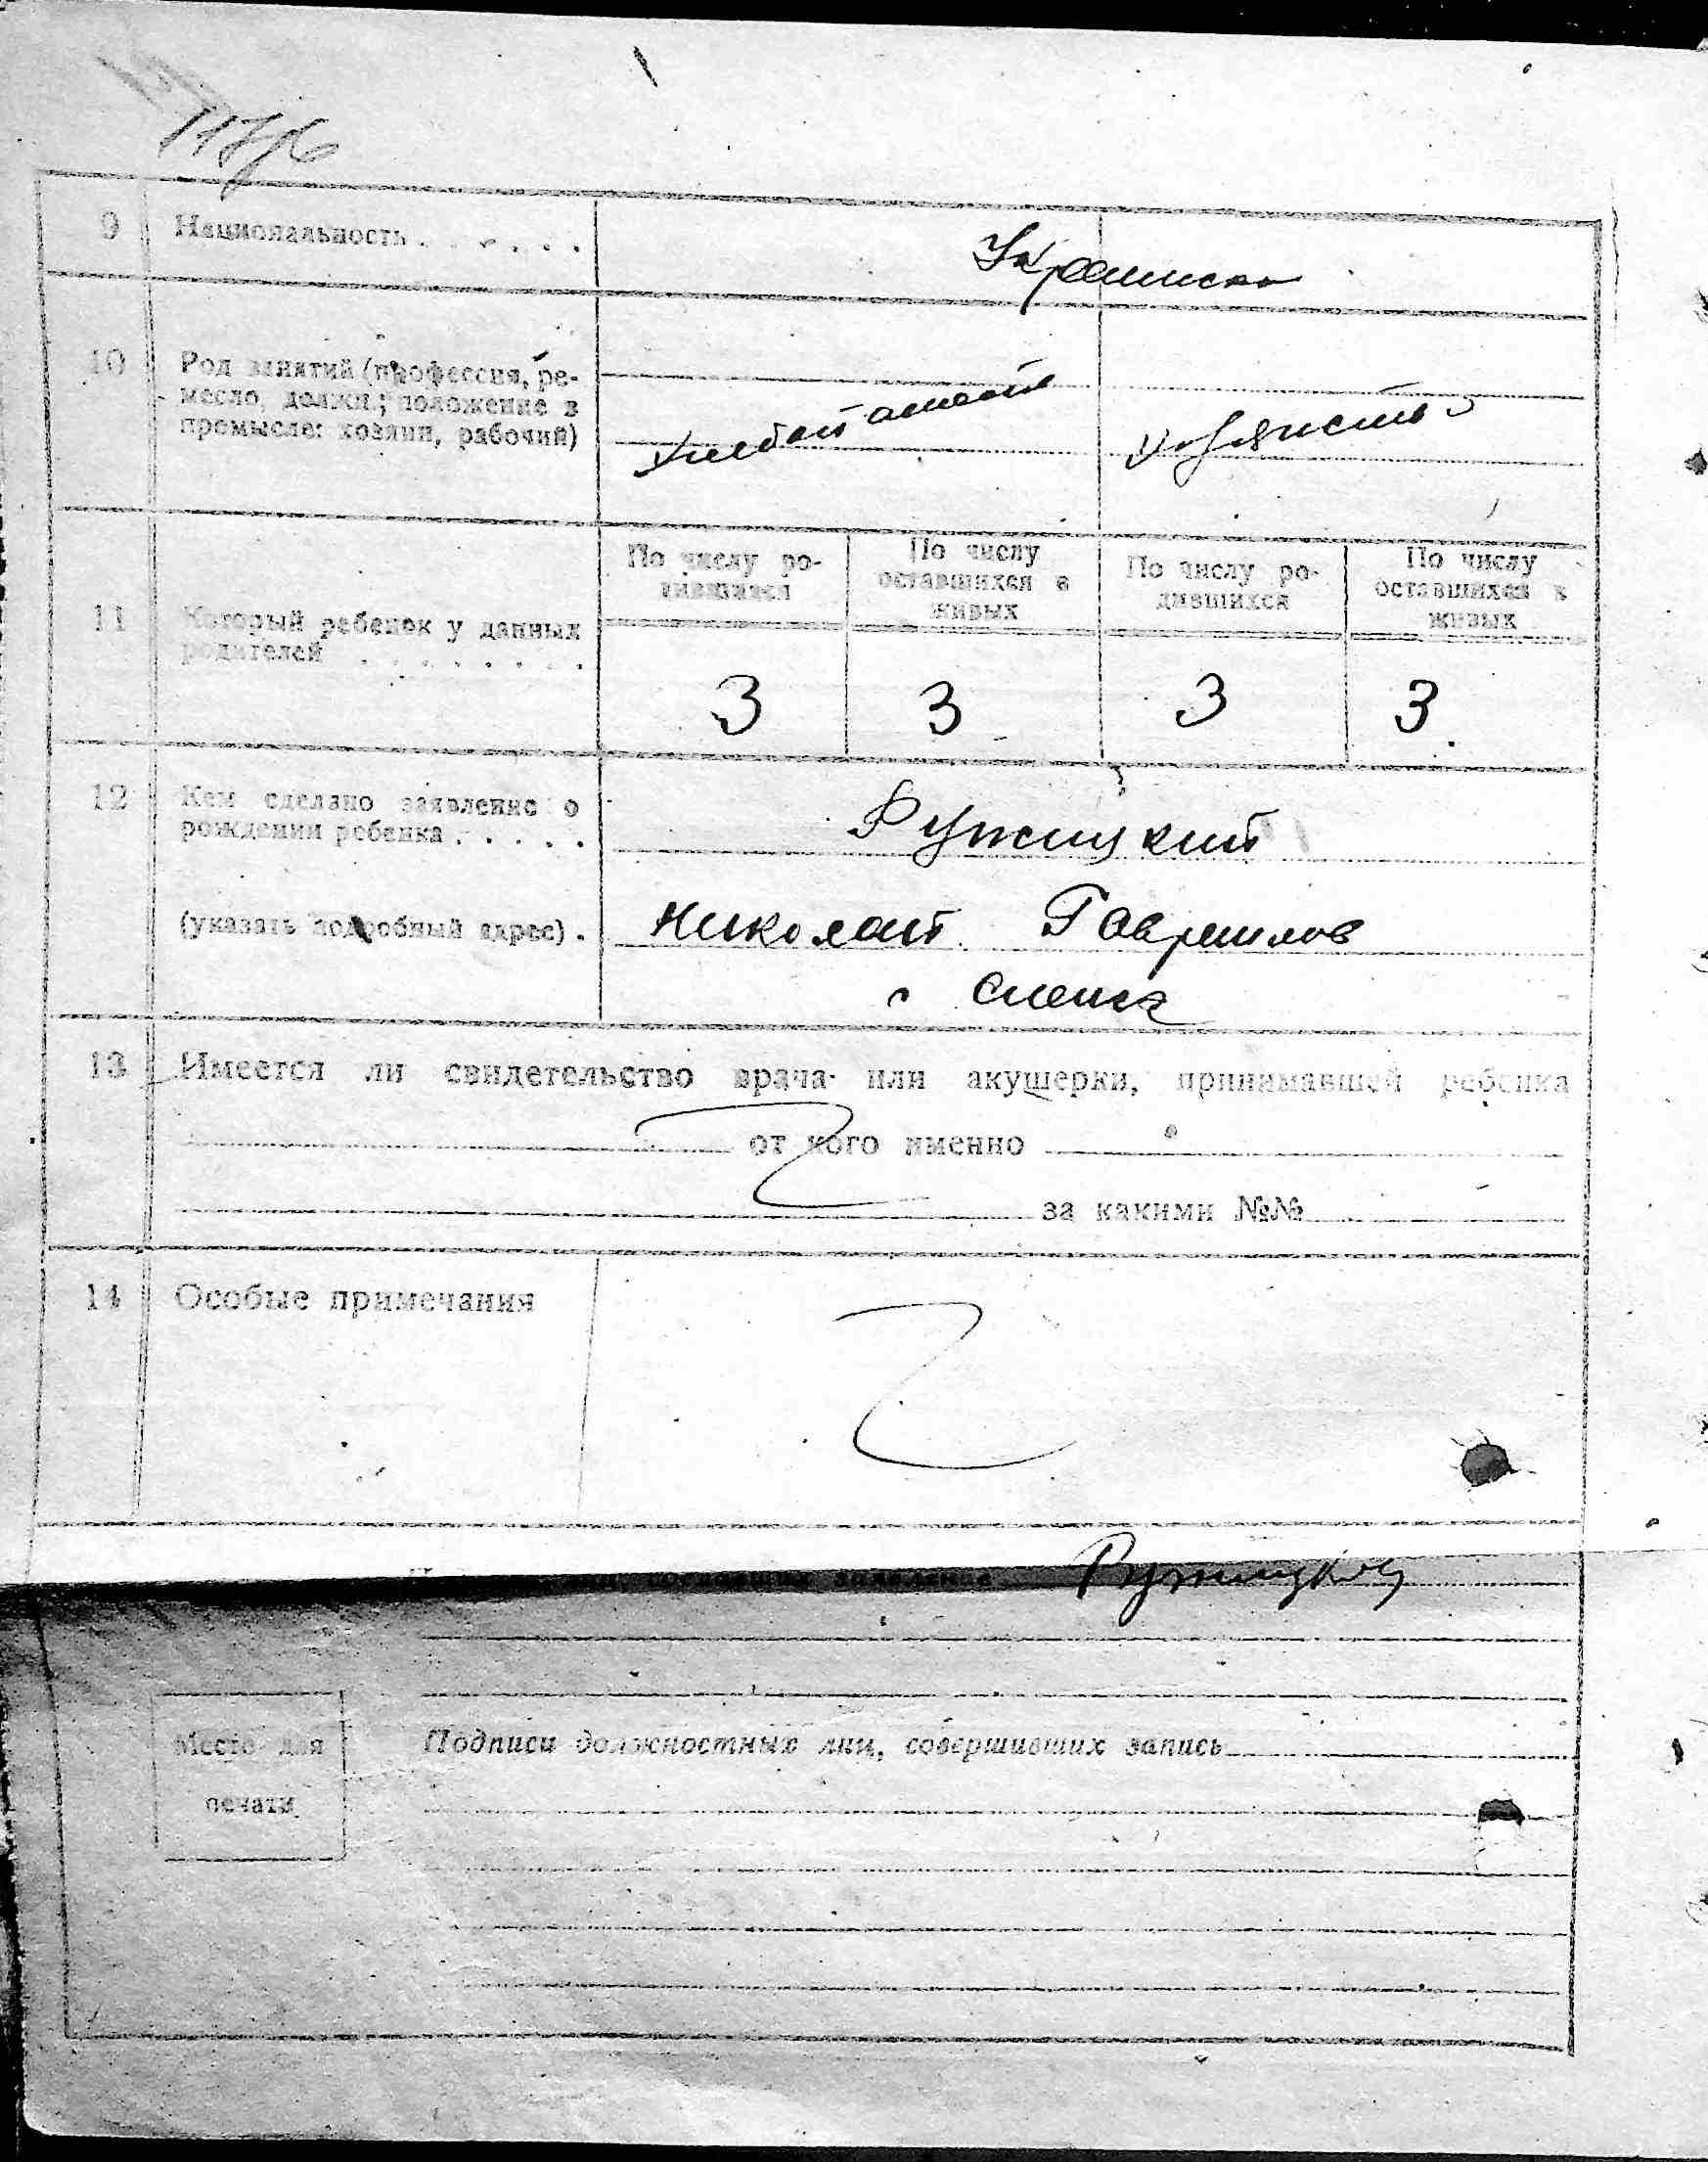 9 Национальность . . . . . .
Украинска
10 Род занятий (профессия, ре-
месло, должн.; положение в
промысле: хозяин, рабочий)
Хлебопашест Хозяйство
11 Который ребенок у данных
родителей . . . . . . . .
По числу ро-
дившихся
По числу
оставшихся в
живых
По числу ро-
дившихся
По числу
оставшихся в
живых
3 3 3 3
12 Кем сделано заявление о
рождении ребенка . . . . .
Ружицкий
(указать подробный адрес) .
Николай Гаврилов
с
13 Имеется ли свидетельство врача или акушерки, принимавшей ребенка
от кого именно
за какими №№
14 Особые примечания
Ружицкий
Место для
печати
Подписи должностных лиц, совершивших запись